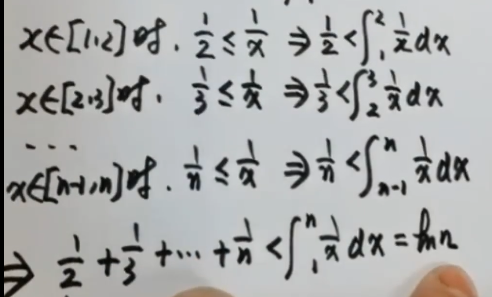 x∈[1,2]时. 1/2 ≤ 1/x ⇒ 1/2 < ∫₁² 1/x dx
x∈[2,3]时. 1/3 ≤ 1/x ⇒ 1/3 < ∫₂³ 1/x dx
...
x∈[n-1,n]时. 1/n ≤ 1/x ⇒ 1/n < ∫ₙ₋₁ⁿ 1/x dx
⇒ 1/2 + 1/3 + ... + 1/n < ∫₁ⁿ 1/x dx = ln n